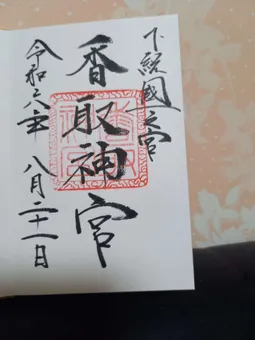 下総國一之宮
香取神宮
令和六年 八月二十一日